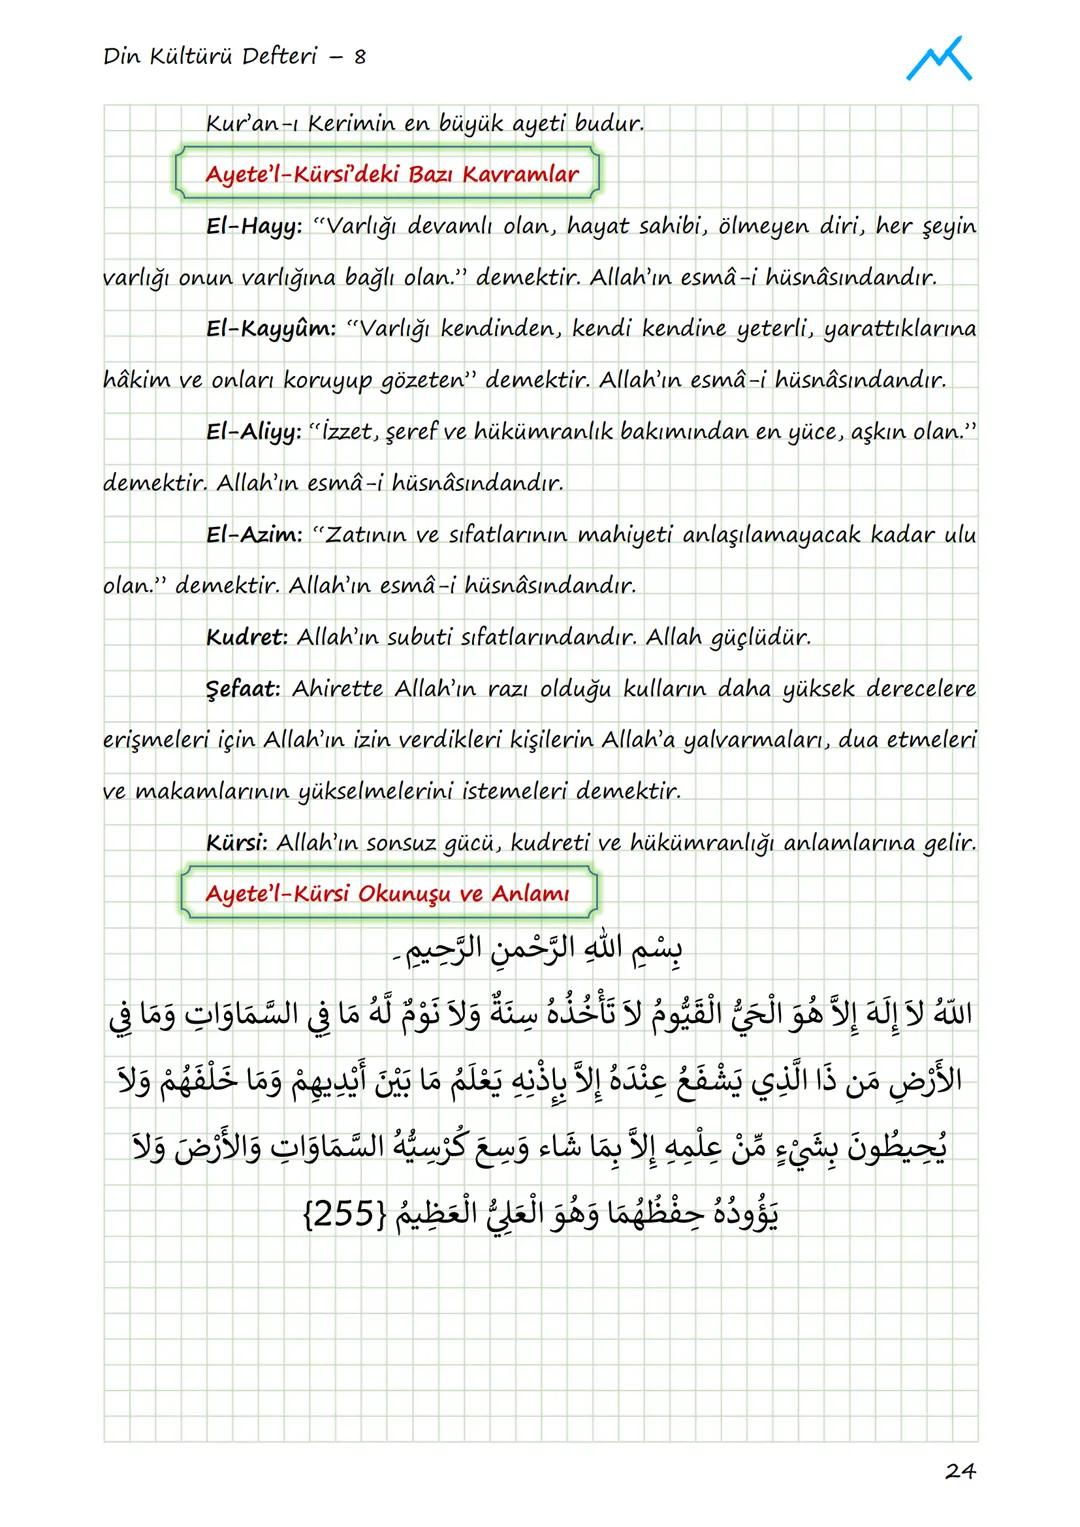 Din Kültürü Defteri – 8
Kur’an-ı Kerimin en büyük ayeti budur.
Ayete’l-Kürsi’deki Bazı Kavramlar
El-Hayy: “Varlığı devamlı olan, hayat sahibi, ölmeyen diri, her şeyin
varlığı onun varlığına bağlı olan.” demektir. Allah’ın esmâ-i hüsnâsındandır.
El-Kayyûm: “Varlığı kendinden, kendi kendine yeterli, yarattıklarına
hâkim ve onları koruyup gözeten” demektir. Allah’ın esmâ-i hüsnâsındandır.
El-Aliyy: “İzzet, şeref ve hükümranlık bakımından en yüce, aşkın olan.”
demektir. Allah’ın esmâ-i hüsnâsındandır.
El-Azim: “Zatının ve sıfatlarının mahiyeti anlaşılamayacak kadar ulu
olan.” demektir. Allah’ın esmâ-i hüsnâsındandır.
Kudret: Allah’ın subuti sıfatlarındandır. Allah güçlüdür.
Şefaat: Ahirette Allah’ın razı olduğu kulların daha yüksek derecelere
erişmeleri için Allah’ın izin verdikleri kişilerin Allah’a yalvarmaları, dua etmeleri
ve makamlarının yükselmelerini istemeleri demektir.
Kürsi: Allah’ın sonsuz gücü, kudreti ve hükümranlığı anlamlarına gelir.
Ayete’l-Kürsi Okunuşu ve Anlamı
بِسْمِ اللهِ الرَّحْمنِ الرَّحِيمِ ـ
اللّهُ لاَ إِلَهَ إِلاَّ هُوَ الْحَيُّ الْقَيُّومُ لاَ تَأْخُذُهُ سِنَةٌ وَلاَ نَوْمٌ لَّهُ مَا فِي السَّمَاوَاتِ وَمَا فِي
الأَرْضِ مَن ذَا الَّذِي يَشْفَعُ عِنْدَهُ إِلاَّ بِإِذْنِهِ يَعْلَمُ مَا بَيْنَ أَيْدِيهِمْ وَمَا خَلْفَهُمْ وَلاَ
يُحِيطُونَ بِشَيْءٍ مِّنْ عِلْمِهِ إِلاَّ بِمَا شَاء وَسِعَ كُرْسِيُّهُ السَّمَاوَاتِ وَالأَرْضَ وَلاَ
يَؤُودُهُ حِفْظُهُمَا وَهُوَ الْعَلِيُّ الْعَظِيمُ {255}
24